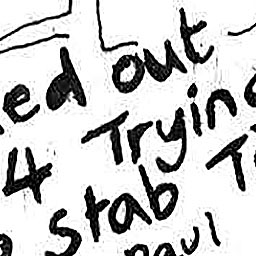 ed out
4 Trying
stab Ti
Paul